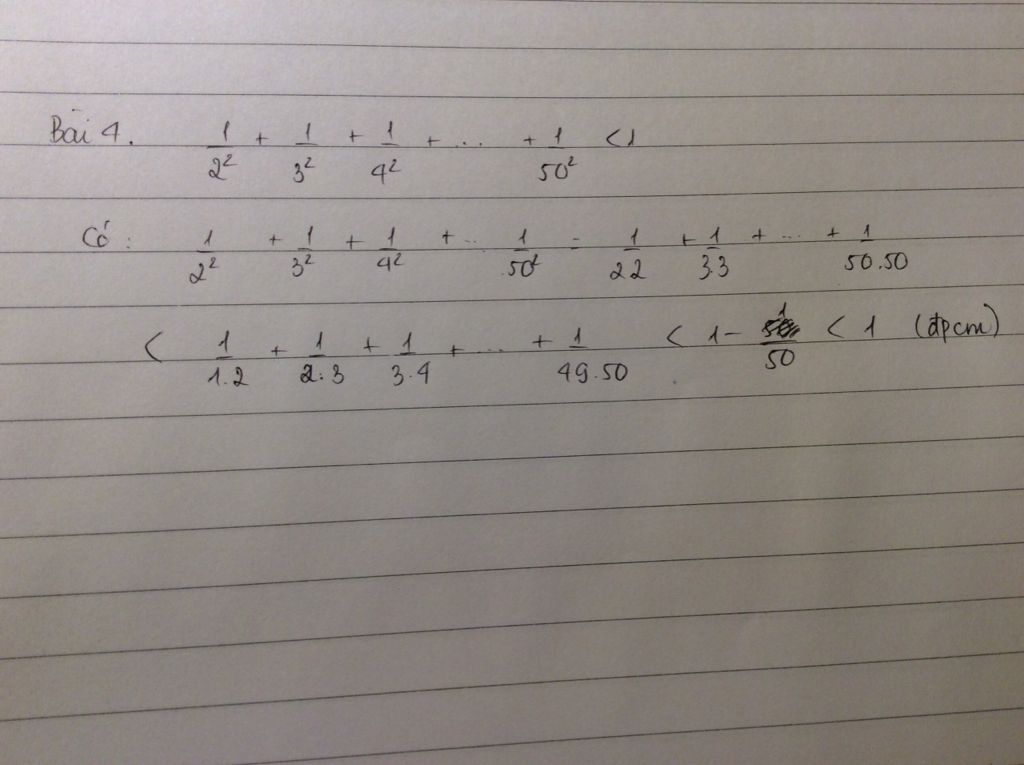 Bài 4. 1/2² + 1/3² + 1/4² + ... + 1/50² < 1
Có: 1/2² + 1/3² + 1/4² + ... 1/50² = 1/2.2 + 1/3.3 + ... + 1/50.50
< 1/1.2 + 1/2.3 + 1/3.4 + ... + 1/49.50 < 1 - 1/50 < 1 (đpcm)